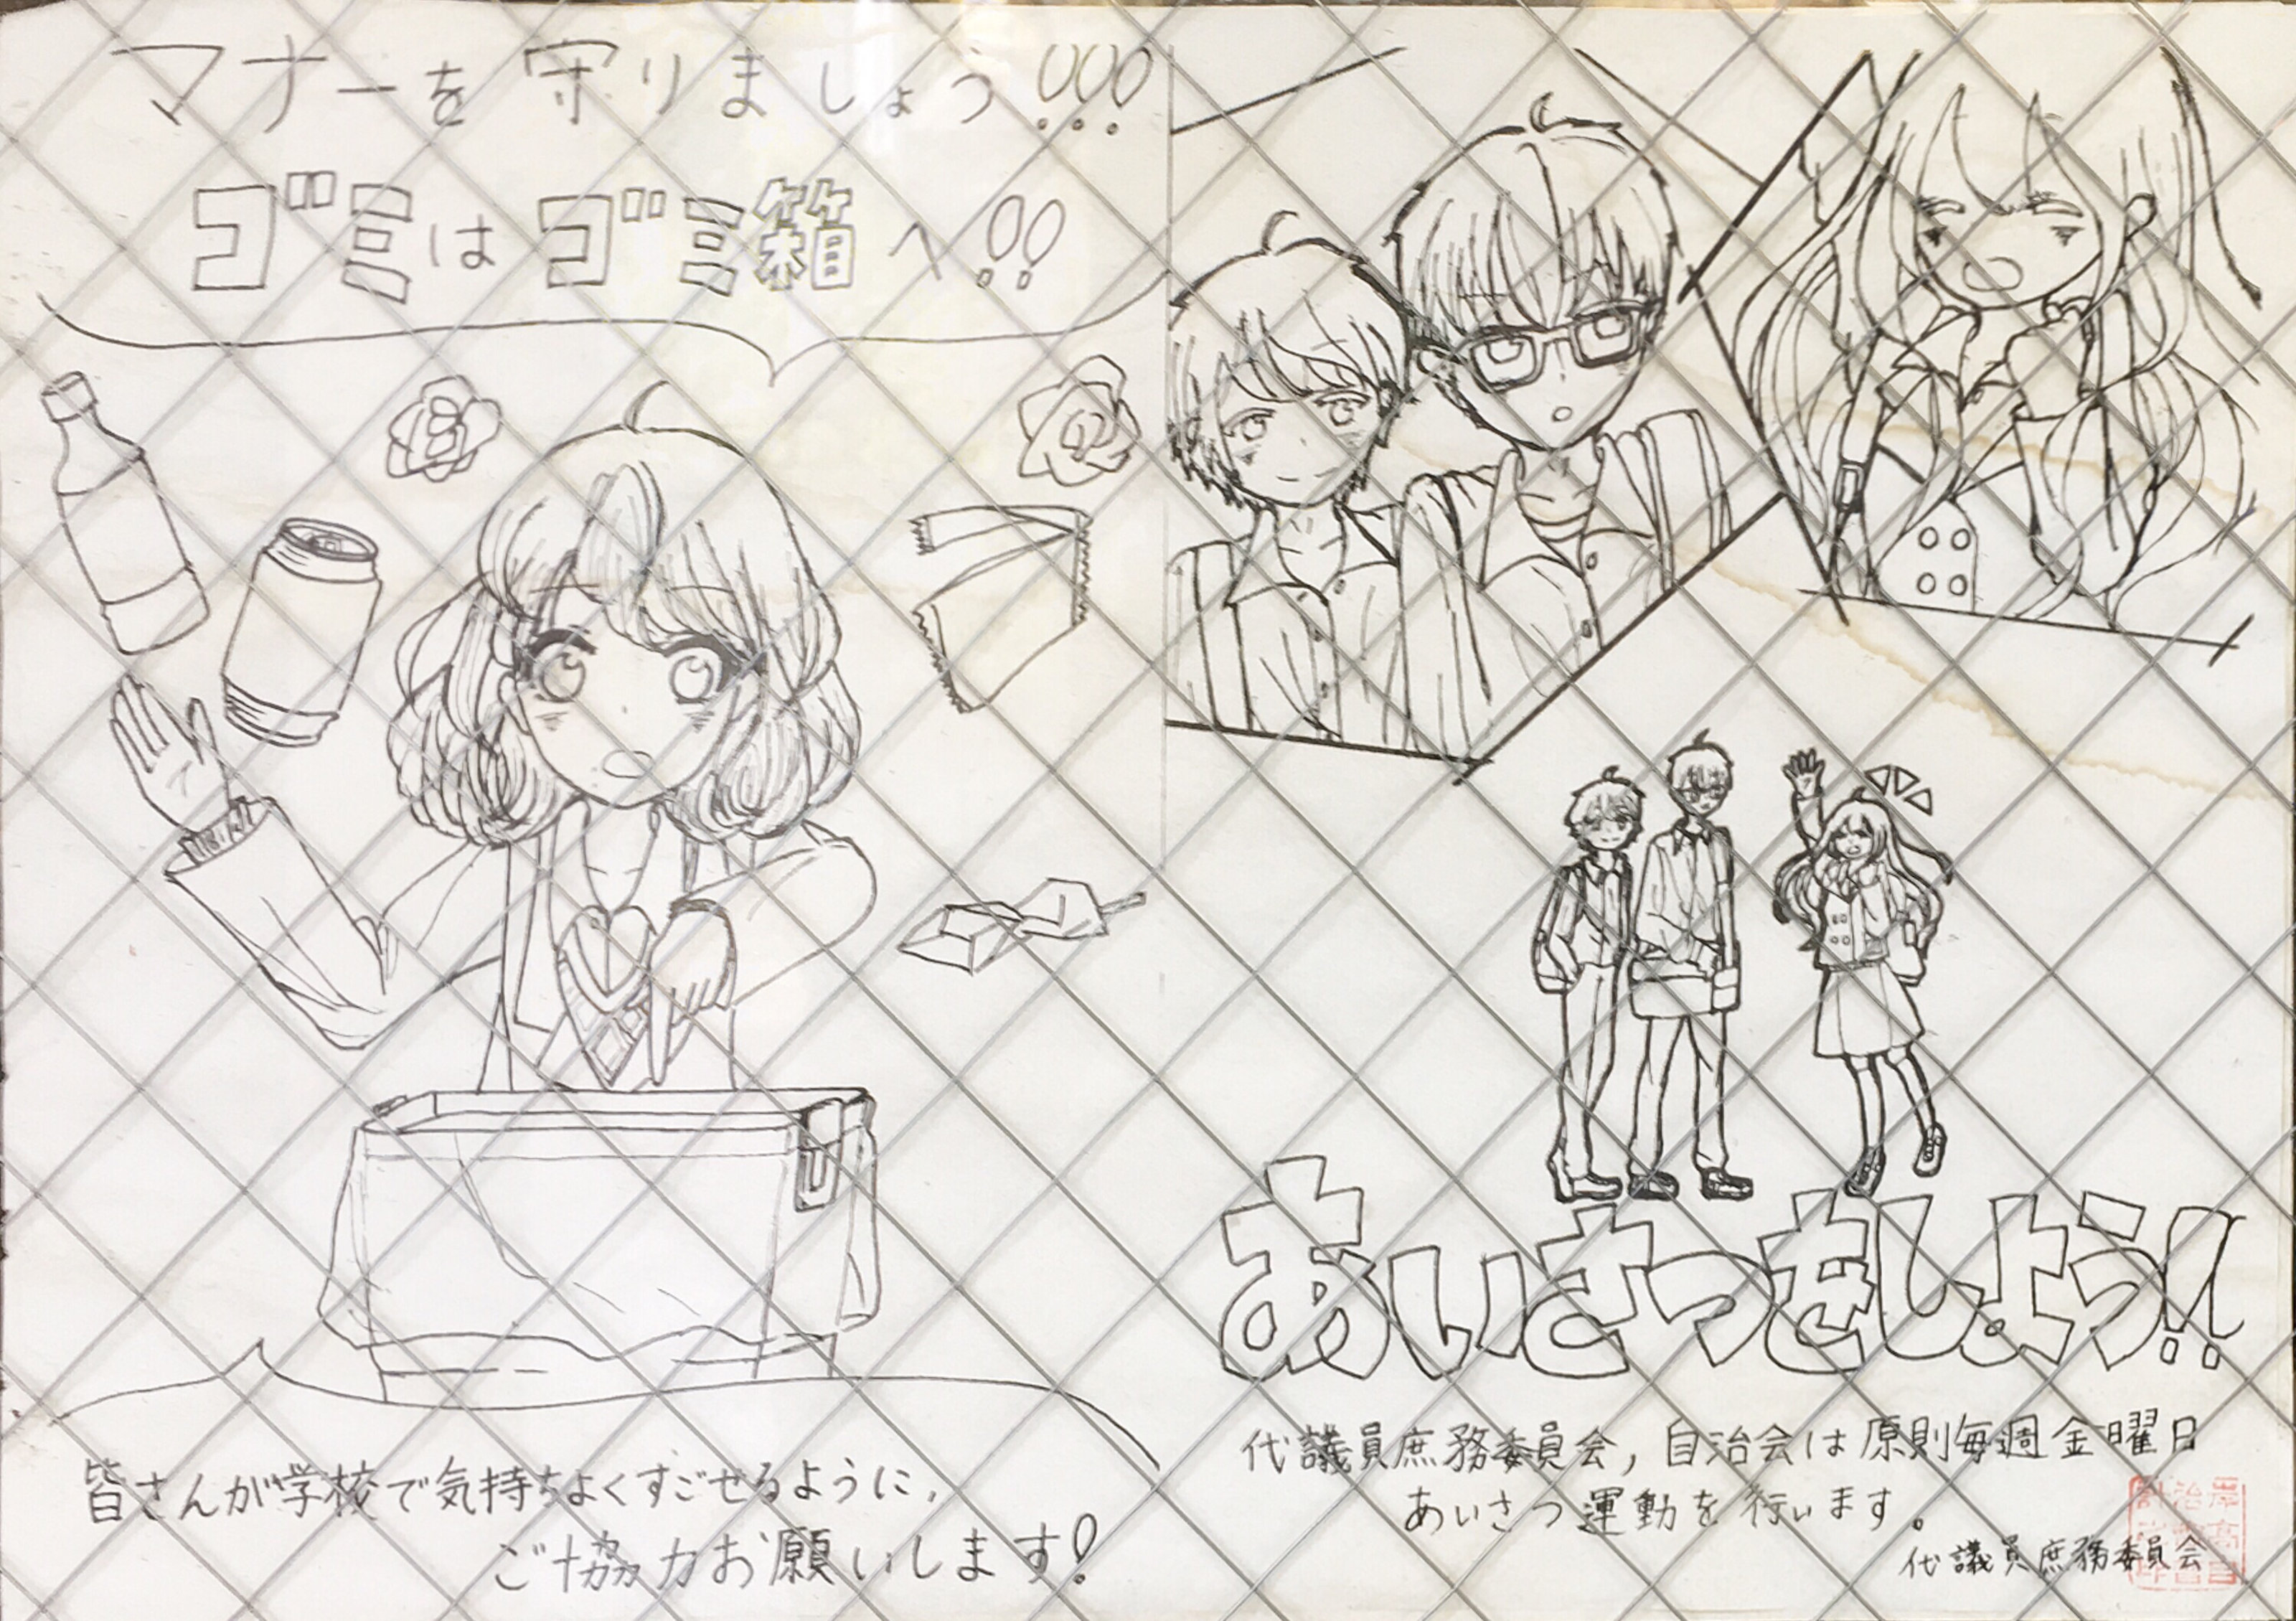 マナーを守りましょう!!!
ゴミはゴミ箱へ!!
皆さんが学校で気持ちよくすごせるように,
ご協力お願いします!
あいさつをしよう!!
代議員庶務委員会,自治会は原則毎週金曜日
あいさつ運動を行います。
代議員庶務委員会